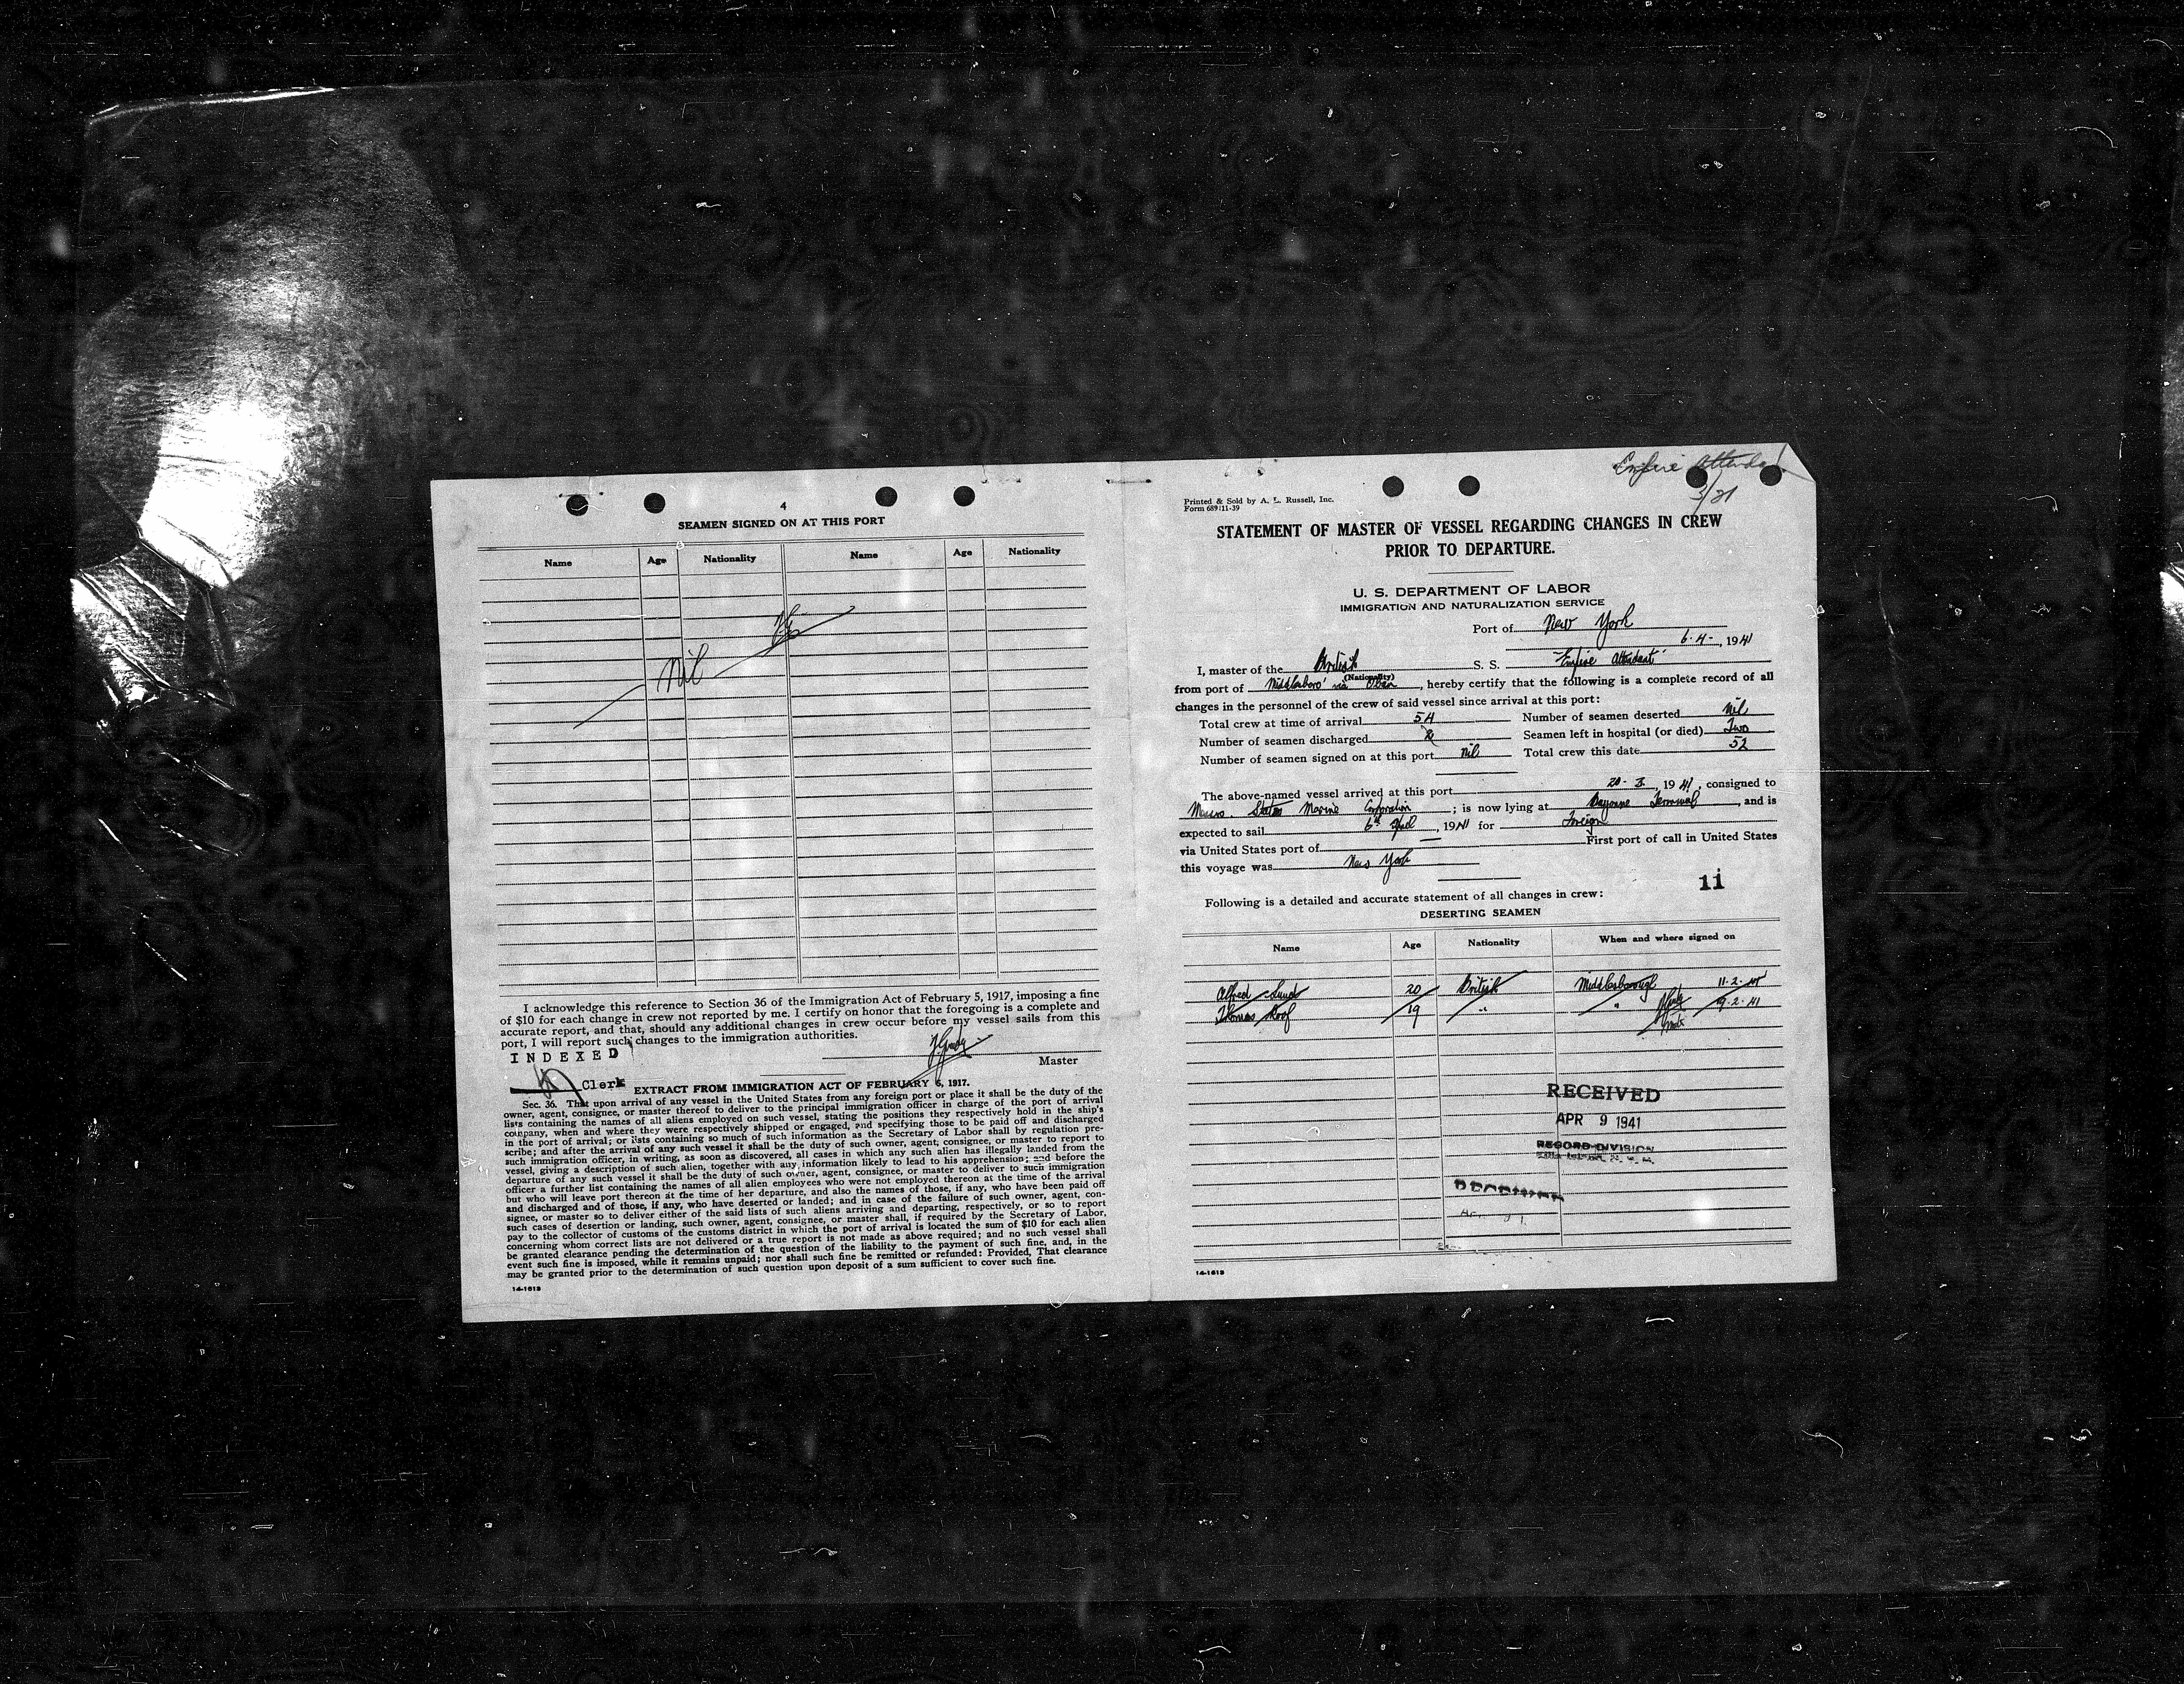 4
SEAMEN SIGNED ON AT THIS PORT
Name Age Nationality Name Age Nationality
Nil
I acknowledge this reference to Section 36 of the Immigration Act of February 5, 1917, imposing a fine
of $10 for each change in crew not reported by me. I certify on honor that the foregoing is a complete and
accurate report, and that, should any additional changes in crew occur before my vessel sails from this
port, I will report such changes to the immigration authorities.
INDEXED
Master
Clerk
EXTRACT FROM IMMIGRATION ACT OF FEBRUARY 5, 1917.
Sec. 36. That upon arrival of any vessel in the United States from any foreign port or place it shall be the duty of the
owner, agent, consignee, or master thereof to deliver to the principal immigration officer in charge of the port of arrival
lists containing the names of all aliens employed on such vessel, stating the positions they respectively hold in the ship's
company, when and where they were respectively shipped or engaged, and specifying those to be paid off and discharged
in the port of arrival; or lists containing so much of such information as the Secretary of Labor shall by regulation pre-
scribe; and after the arrival of any such vessel it shall be the duty of such owner, agent, consignee, or master to report to
such immigration officer, in writing, as soon as discovered, all cases in which any such alien has illegally landed from the
vessel, giving a description of such alien, together with any information likely to lead to his apprehension; and before the
departure of any such vessel it shall be the duty of such owner, agent, consignee, or master to deliver to such immigration
officer a further list containing the names of all alien employees who were not employed thereon at the time of the arrival
but who will leave port thereon at the time of her departure, and also the names of those, if any, who have been paid off
and discharged and of those, if any, who have deserted or landed; and in case of the failure of such owner, agent, con-
signee, or master so to deliver either of the said lists of such aliens arriving and departing, respectively, or so to report
such cases of desertion or landing, such owner, agent, consignee, or master shall, if required by the Secretary of Labor,
pay to the collector of customs of the customs district in which the port of arrival is located the sum of $10 for each alien
concerning whom correct lists are not delivered or a true report is not made as above required; and no such vessel shall
be granted clearance pending the determination of the question of the liability to the payment of such fine, and, in the
event such fine is imposed, while it remains unpaid; nor shall such fine be remitted or refunded: Provided, That clearance
may be granted prior to the determination of such question upon deposit of a sum sufficient to cover such fine.
14-1613
Empire
3/21
Printed & Sold by A. L. Russell, Inc.
Form 689 11-39
STATEMENT OF MASTER OF VESSEL REGARDING CHANGES IN CREW
PRIOR TO DEPARTURE.
U. S. DEPARTMENT OF LABOR
IMMIGRATION AND NATURALIZATION SERVICE
Port of New York
6-4-, 1941
I, master of the British S. S. "Empire Attendant"
(Nationality)
from port of Middlesboro' via Oban, hereby certify that the following is a complete record of all
changes in the personnel of the crew of said vessel since arrival at this port:
Total crew at time of arrival 54 Number of seamen deserted Nil
Number of seamen discharged Seamen left in hospital (or died) Two
Number of seamen signed on at this port Nil Total crew this date 52
The above-named vessel arrived at this port 20-3, 1941, consigned to
Messrs. States Marine Corporation; is now lying at Bayonne Terminal, and is
expected to sail 6th April, 1941 for Foreign
via United States port of First port of call in United States
this voyage was New York
11
Following is a detailed and accurate statement of all changes in crew:
DESERTING SEAMEN
Name Age Nationality When and where signed on
Alfred Lund 20 British Middlesborough 11-2-41
Thomas 19 " " 19-2-41
RECEIVED
APR 9 1941
RECORD DIVISION
14-1613